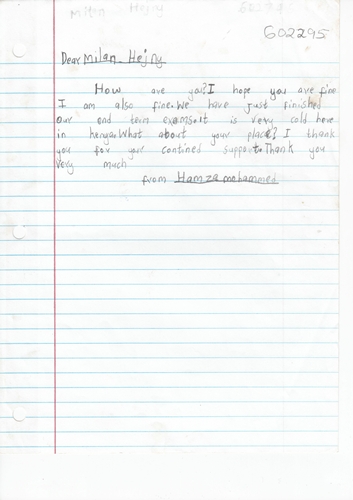 Milan Hejny
602295
Dear Milan Hejny
How are you? I hope you are fine
I am also fine. We have just finished
our end term exams. It is very cold here
in kenya. What about your place? I thank
you for your contined support. Thank you
very much
from Hamza mohammed